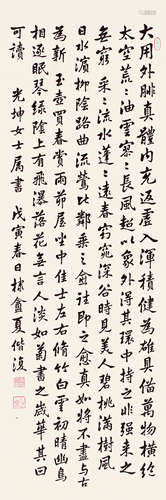 大用外腓真體內充返虛入渾積健為雄具備萬物橫絕
太空荒荒油雲寥寥長風超以象外得其環中持之非強來之
無窮采采流水蓬蓬遠春窈窕深谷時見美人碧桃滿樹風
日水濱柳陰路曲流鶯比鄰乘之愈往識之愈真如將不盡與古
為新玉壺買春賞雨茆屋坐中佳士左右脩竹白雲初晴幽鳥
相逐眠琴綠陰上有飛瀑落花無言人淡如菊書之歲華其曰
可讀 光坤女士属書 戊寅春日棣盦夏偕復